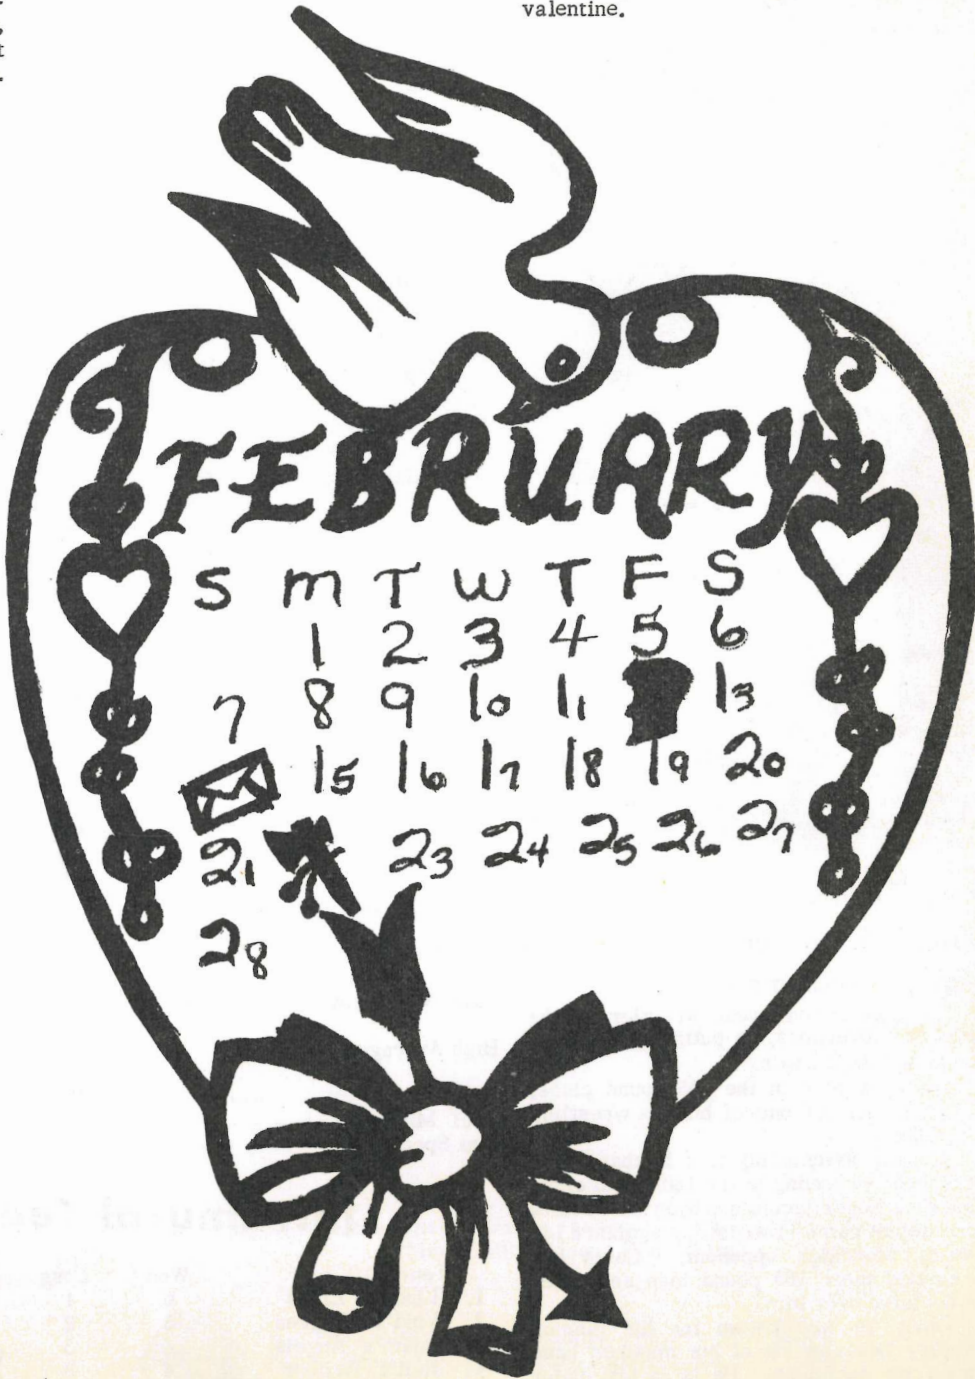 valentine.
FEBRUARY
S M T W T F S
1 2 3 4 5 6
7 8 9 10 11 13
15 16 17 18 19 20
21 23 24 25 26 27
28